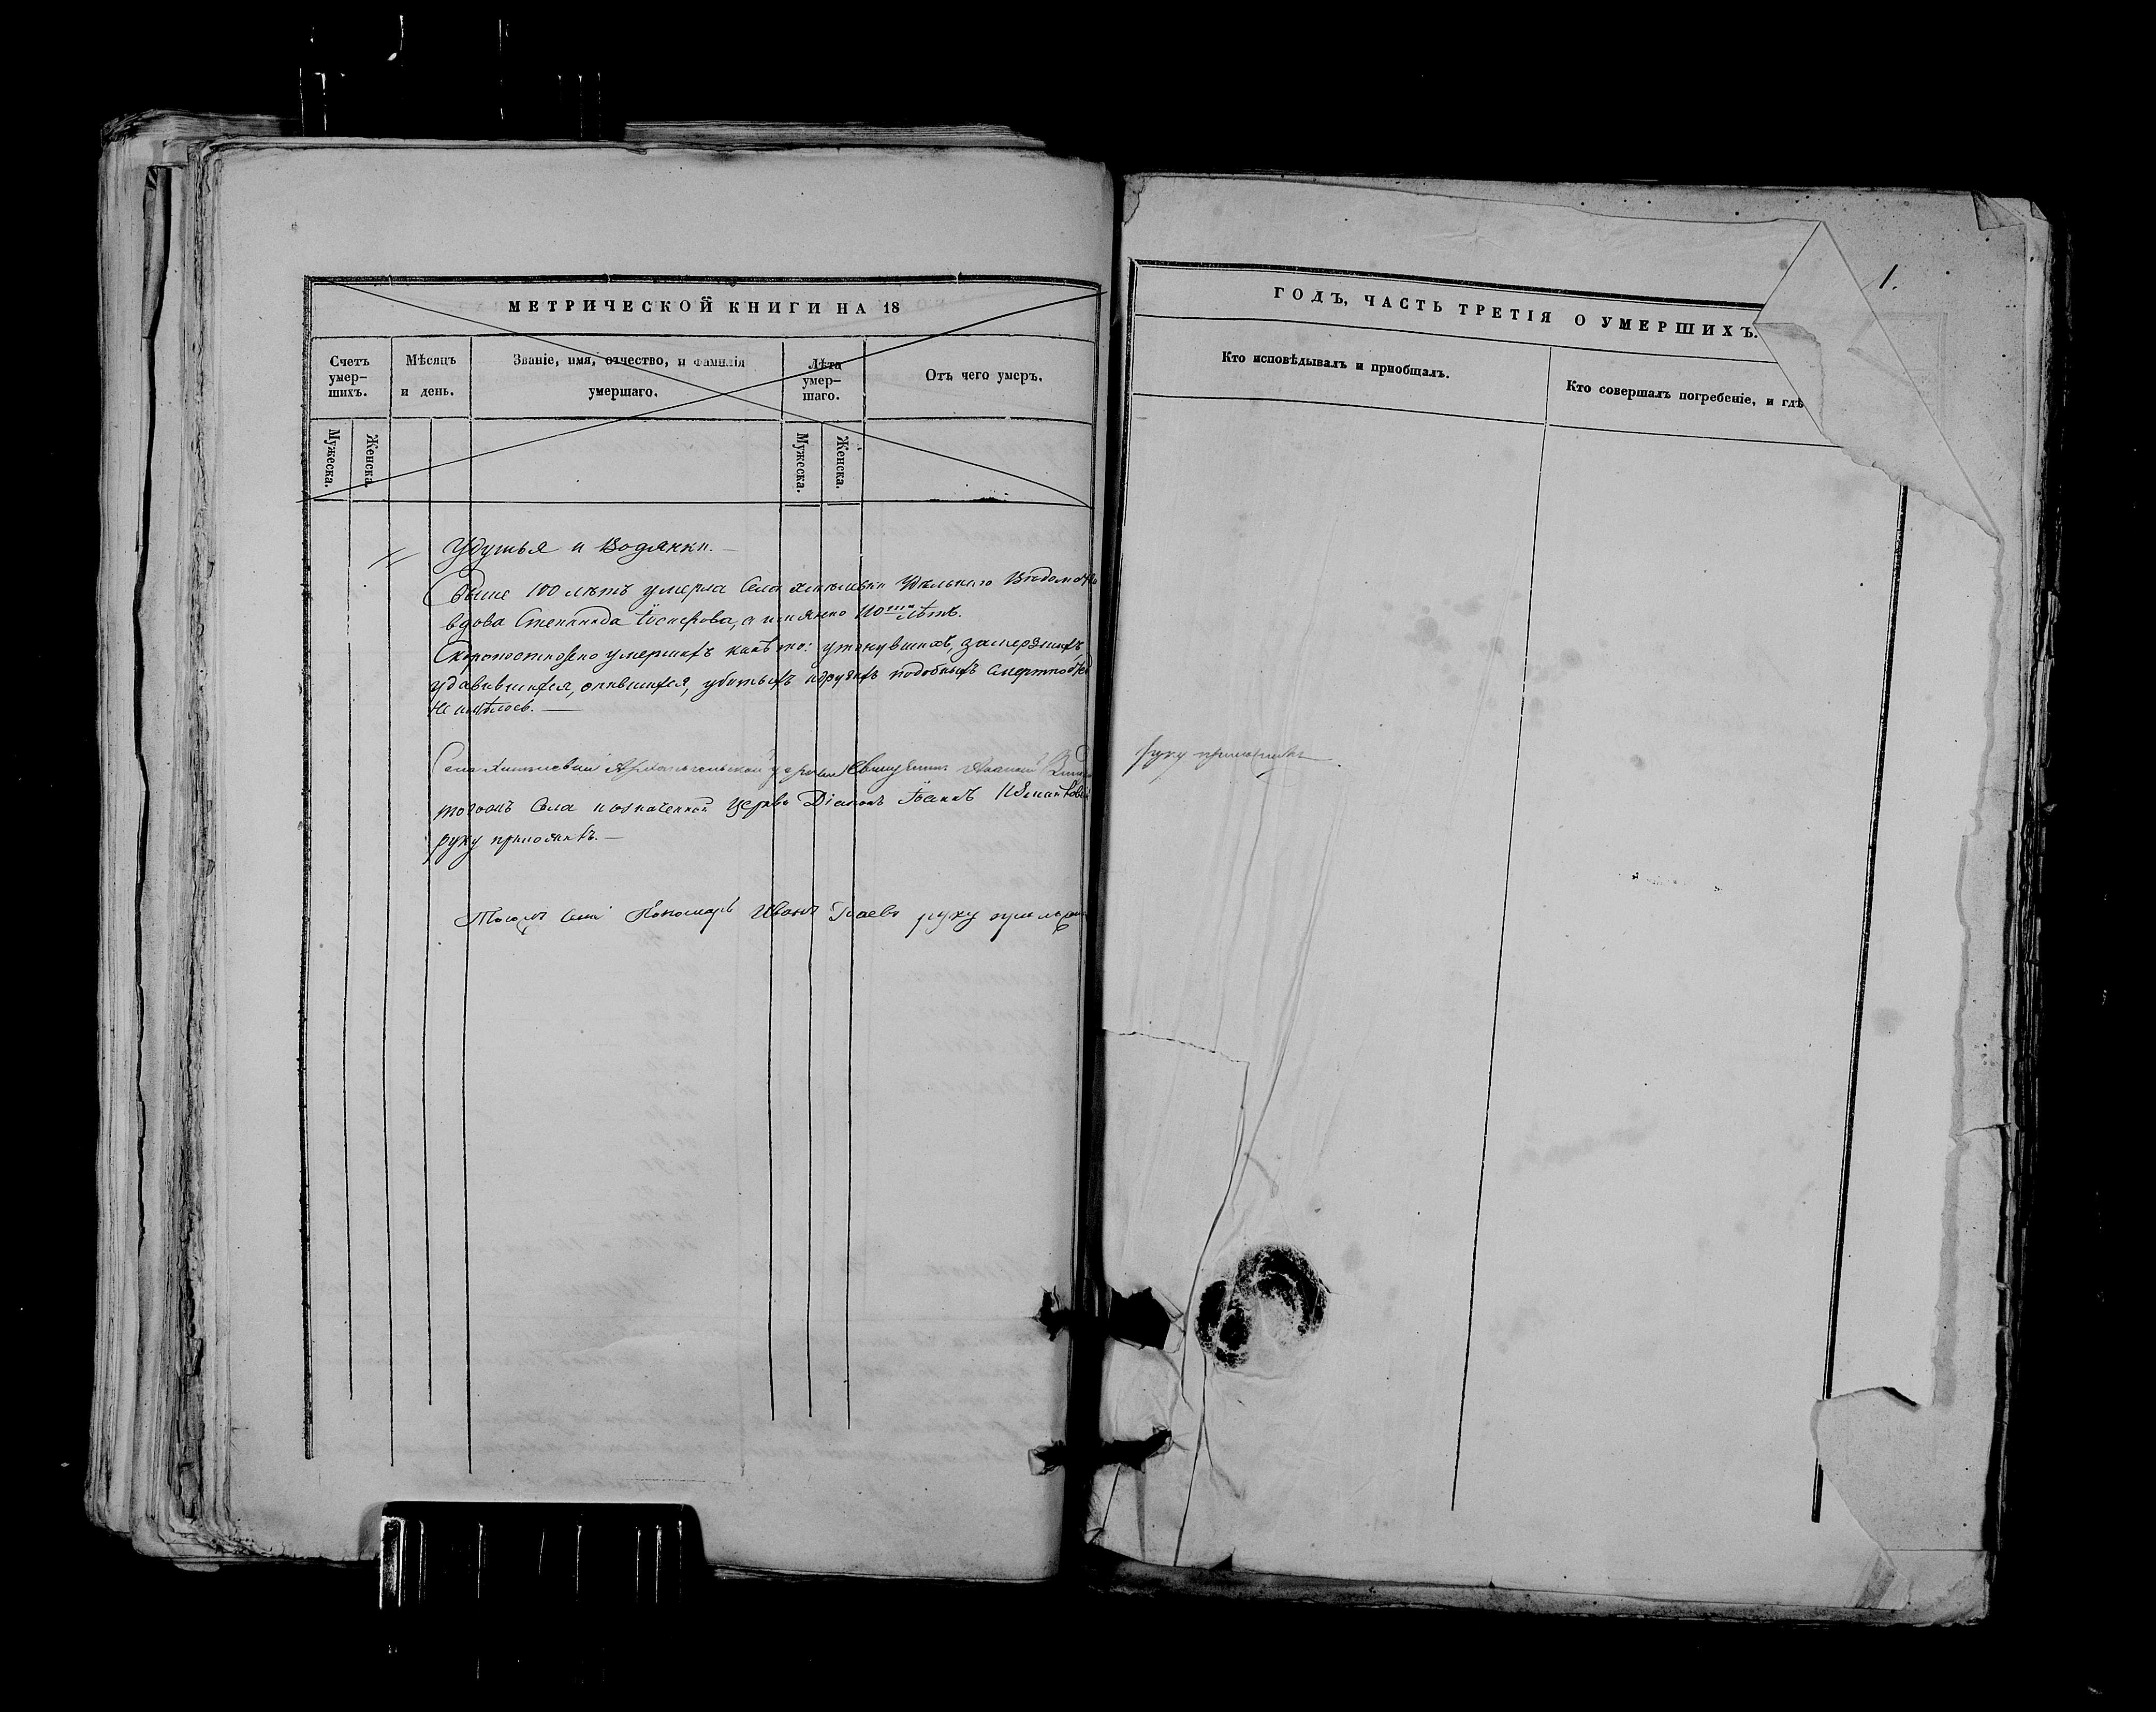 МЕТРИЧЕСКОЙ КНИГИ НА 18
Счетъ умер-шихъ.
Мѣсяцъ и день.
Званіе, имя, отчество, и фамилія умершаго.
Лѣта умер-шаго.
Отъ чего умеръ.
Мужеска.
Женска.
Мужеска.
Женска.
Удушья и Водянки.
Свыше 100 лѣтъ умерла Села Удѣльнаго Вѣдомства
вдова Степанида а именно 110ти лѣтъ.
Скоропостижно умершихъ какъ то: утонувшихъ, замерзшихъ
удавившихся, опившихся, убитыхъ и другихъ подобныхъ
не имѣлось.
Села Архангельской церкви Священникъ
тогожъ Села и означенной Церкви Діаконъ Іоаннъ
руку приложилъ.
Тогожъ Села Пономарь Иванъ руку
ГОДЪ, ЧАСТЬ ТРЕТІЯ О УМЕРШИХЪ.
1.
Кто исповѣдывалъ и пріобщалъ.
Кто совершалъ погребеніе, и гдѣ
руку приложилъ